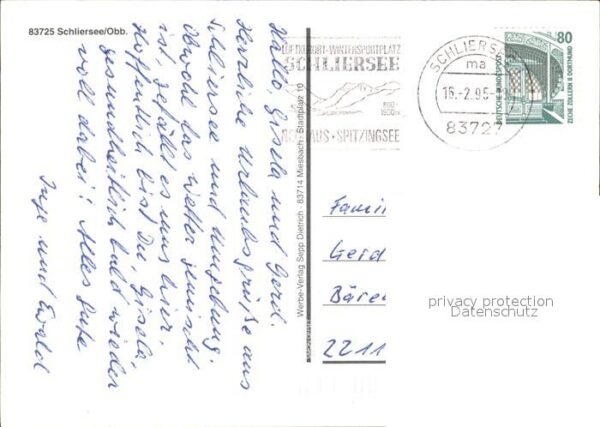 83725 Schliersee/Obb.
Hallo Gisela und Gerd.
Herzliche Urlaubsgrüße aus
Schliersee und Umgebung.
Obwohl das Wetter gemischt
ist, gefällt es uns hier.
Hoffentlich bist Du, Gisela,
gesundheitlich bald wieder
voll dabei! Alles Gute
Inge und Ewald
Werbe-Verlag Sepp Dietrich · 83714 Miesbach · Stadtplatz 10
LUFTKURORT-WINTERSPORTPLATZ
SCHLIERSEE
800-
SPITZINGSEE
SCHLIERSEE
ma
16.-2.95-
83727
80
DEUTSCHE BUNDESPOST
ZECHE ZOLLERN II DORTMUND
Famil
Gerd
Bäre
2211
privacy protection
Datenschutz